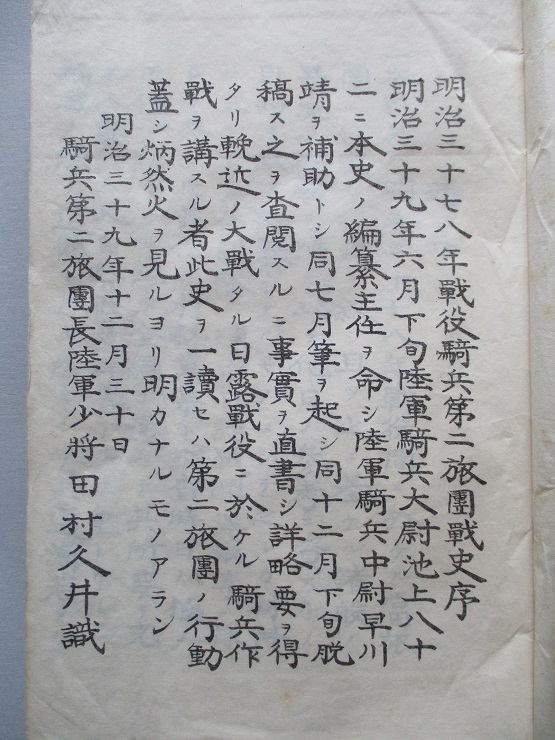 明治三十七八年戰役騎兵第二旅團戰史序
明治三十九年六月下旬陸軍騎兵大尉池上八十
二ニ本史ノ編纂主任ヲ命シ陸軍騎兵中尉早川
靖ヲ補助トシ同七月筆ヲ起シ同十二月下旬脱
稿ス之ヲ査閲スルニ事實ヲ直書シ詳略要ヲ得
タリ輓近ノ大戰タル日露戰役ニ於ケル騎兵作
戰ヲ講スル者此史ヲ一讀セハ第二旅團ノ行動
蓋シ炳然火ヲ見ルヨリ明カナルモノアラン
明治三十九年十二月三十日
騎兵第二旅團長陸軍少將田村久井識